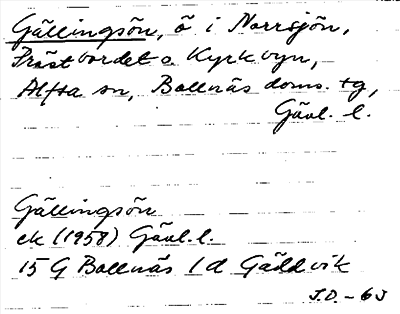 Gällingsön, ö i Norrsjön,
Prästbordet o Kyrkbyn,
Alfta sn, Bollnäs doms. tg,
Gävl. l.
Gällingsön
ek (1958) Gävl. l.
15 G Bollnäs 1 d Gäddvik
J.D. - 63